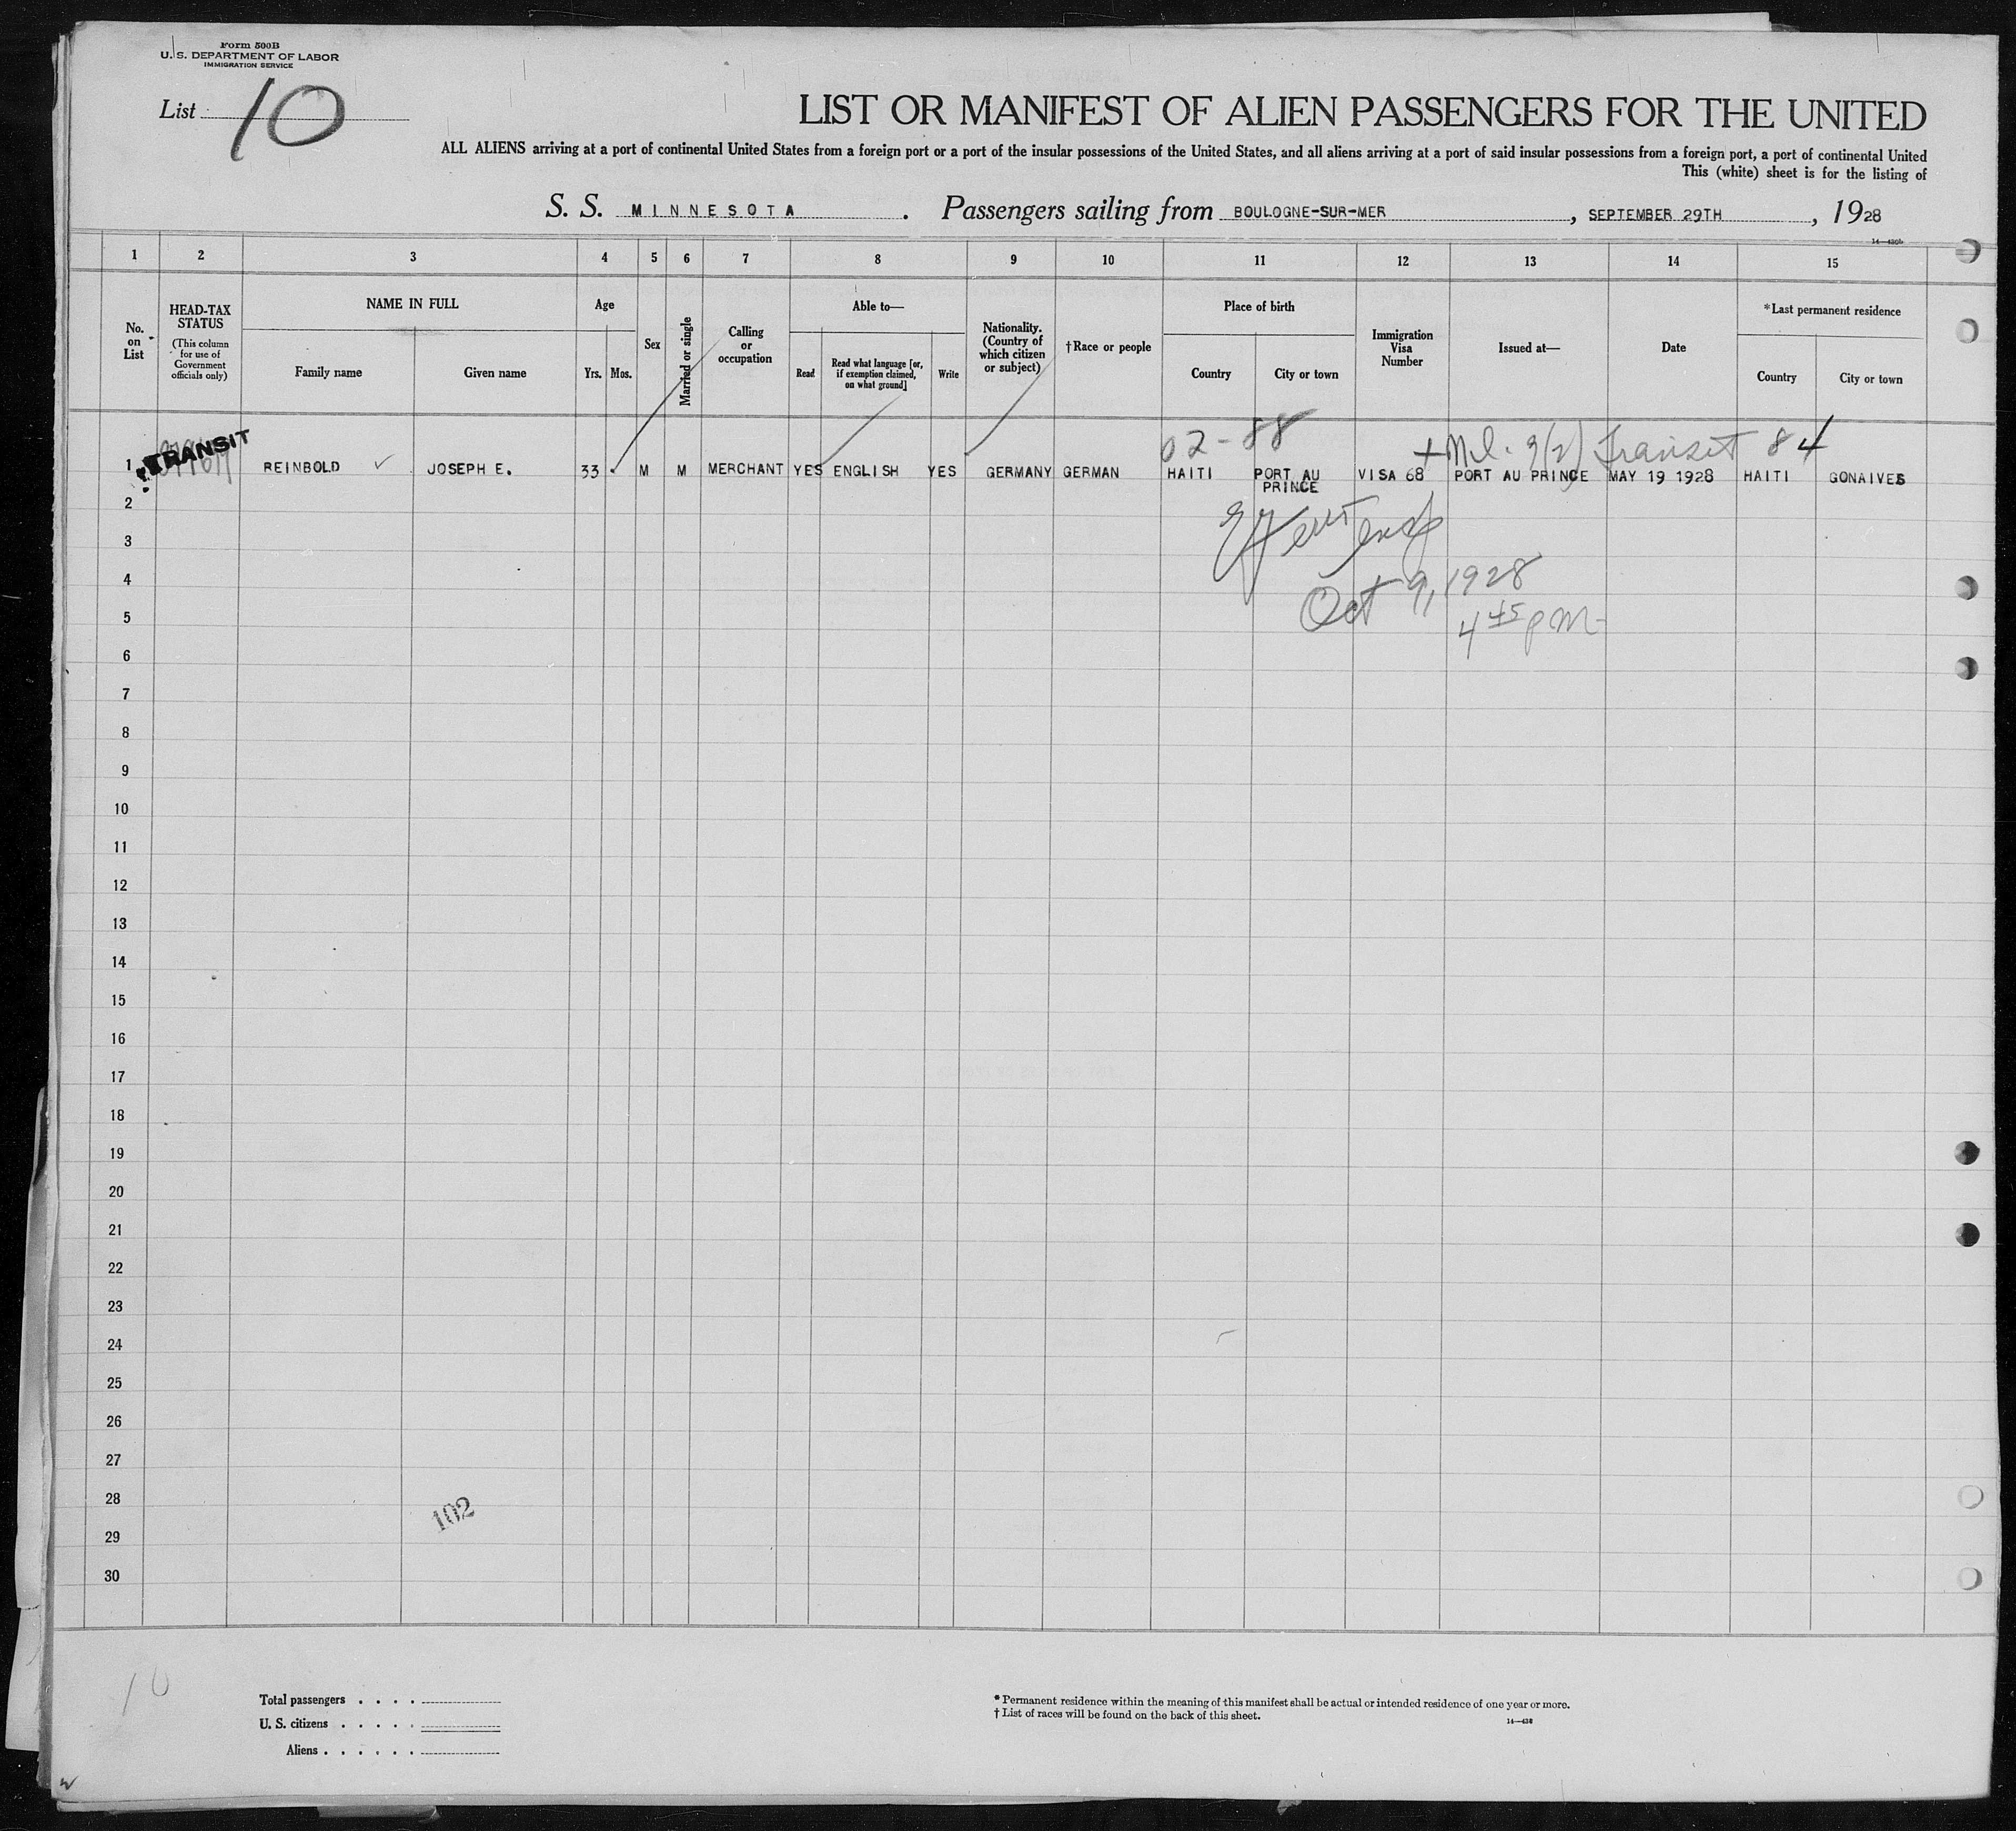 Form 500B
U. S. DEPARTMENT OF LABOR
IMMIGRATION SERVICE
List 10
LIST OR MANIFEST OF ALIEN PASSENGERS FOR THE UNITED
ALL ALIENS arriving at a port of continental United States from a foreign port or a port of the insular possessions of the United States, and all aliens arriving at a port of said insular possessions from a foreign port, a port of continental United
This (white) sheet is for the listing of
S. S. MINNESOTA . Passengers sailing from BOULOGNE-SUR-MER , SEPTEMBER 29TH , 1928
1 2 3 4 5 6 7 8 9 10 11 12 13 14 15
No. on List
HEAD-TAX STATUS
(This column for use of Government officials only)
NAME IN FULL
Family name
Given name
Age
Yrs. Mos.
Sex
Married or single
Calling or occupation
Able to—
Read
Read what language [or, if exemption claimed, on what ground]
Write
Nationality. (Country of which citizen or subject)
†Race or people
Place of birth
Country
City or town
Immigration Visa Number
Issued at—
Date
*Last permanent residence
Country
City or town
02-88
Transit 84
1 TRANSIT REINBOLD JOSEPH E. 33 M M MERCHANT YES ENGLISH YES GERMANY GERMAN HAITI PORT AU PRINCE VISA 68 PORT AU PRINCE MAY 19 1928 HAITI GONAIVES
2
3
4
Oct 9, 1928
5
4 45 pm
6
7
8
9
10
11
12
13
14
15
16
17
18
19
20
21
22
23
24
25
26
27
28
102
29
30
10
Total passengers . . . .
U. S. citizens . . . . .
Aliens . . . . . .
* Permanent residence within the meaning of this manifest shall be actual or intended residence of one year or more.
† List of races will be found on the back of this sheet.